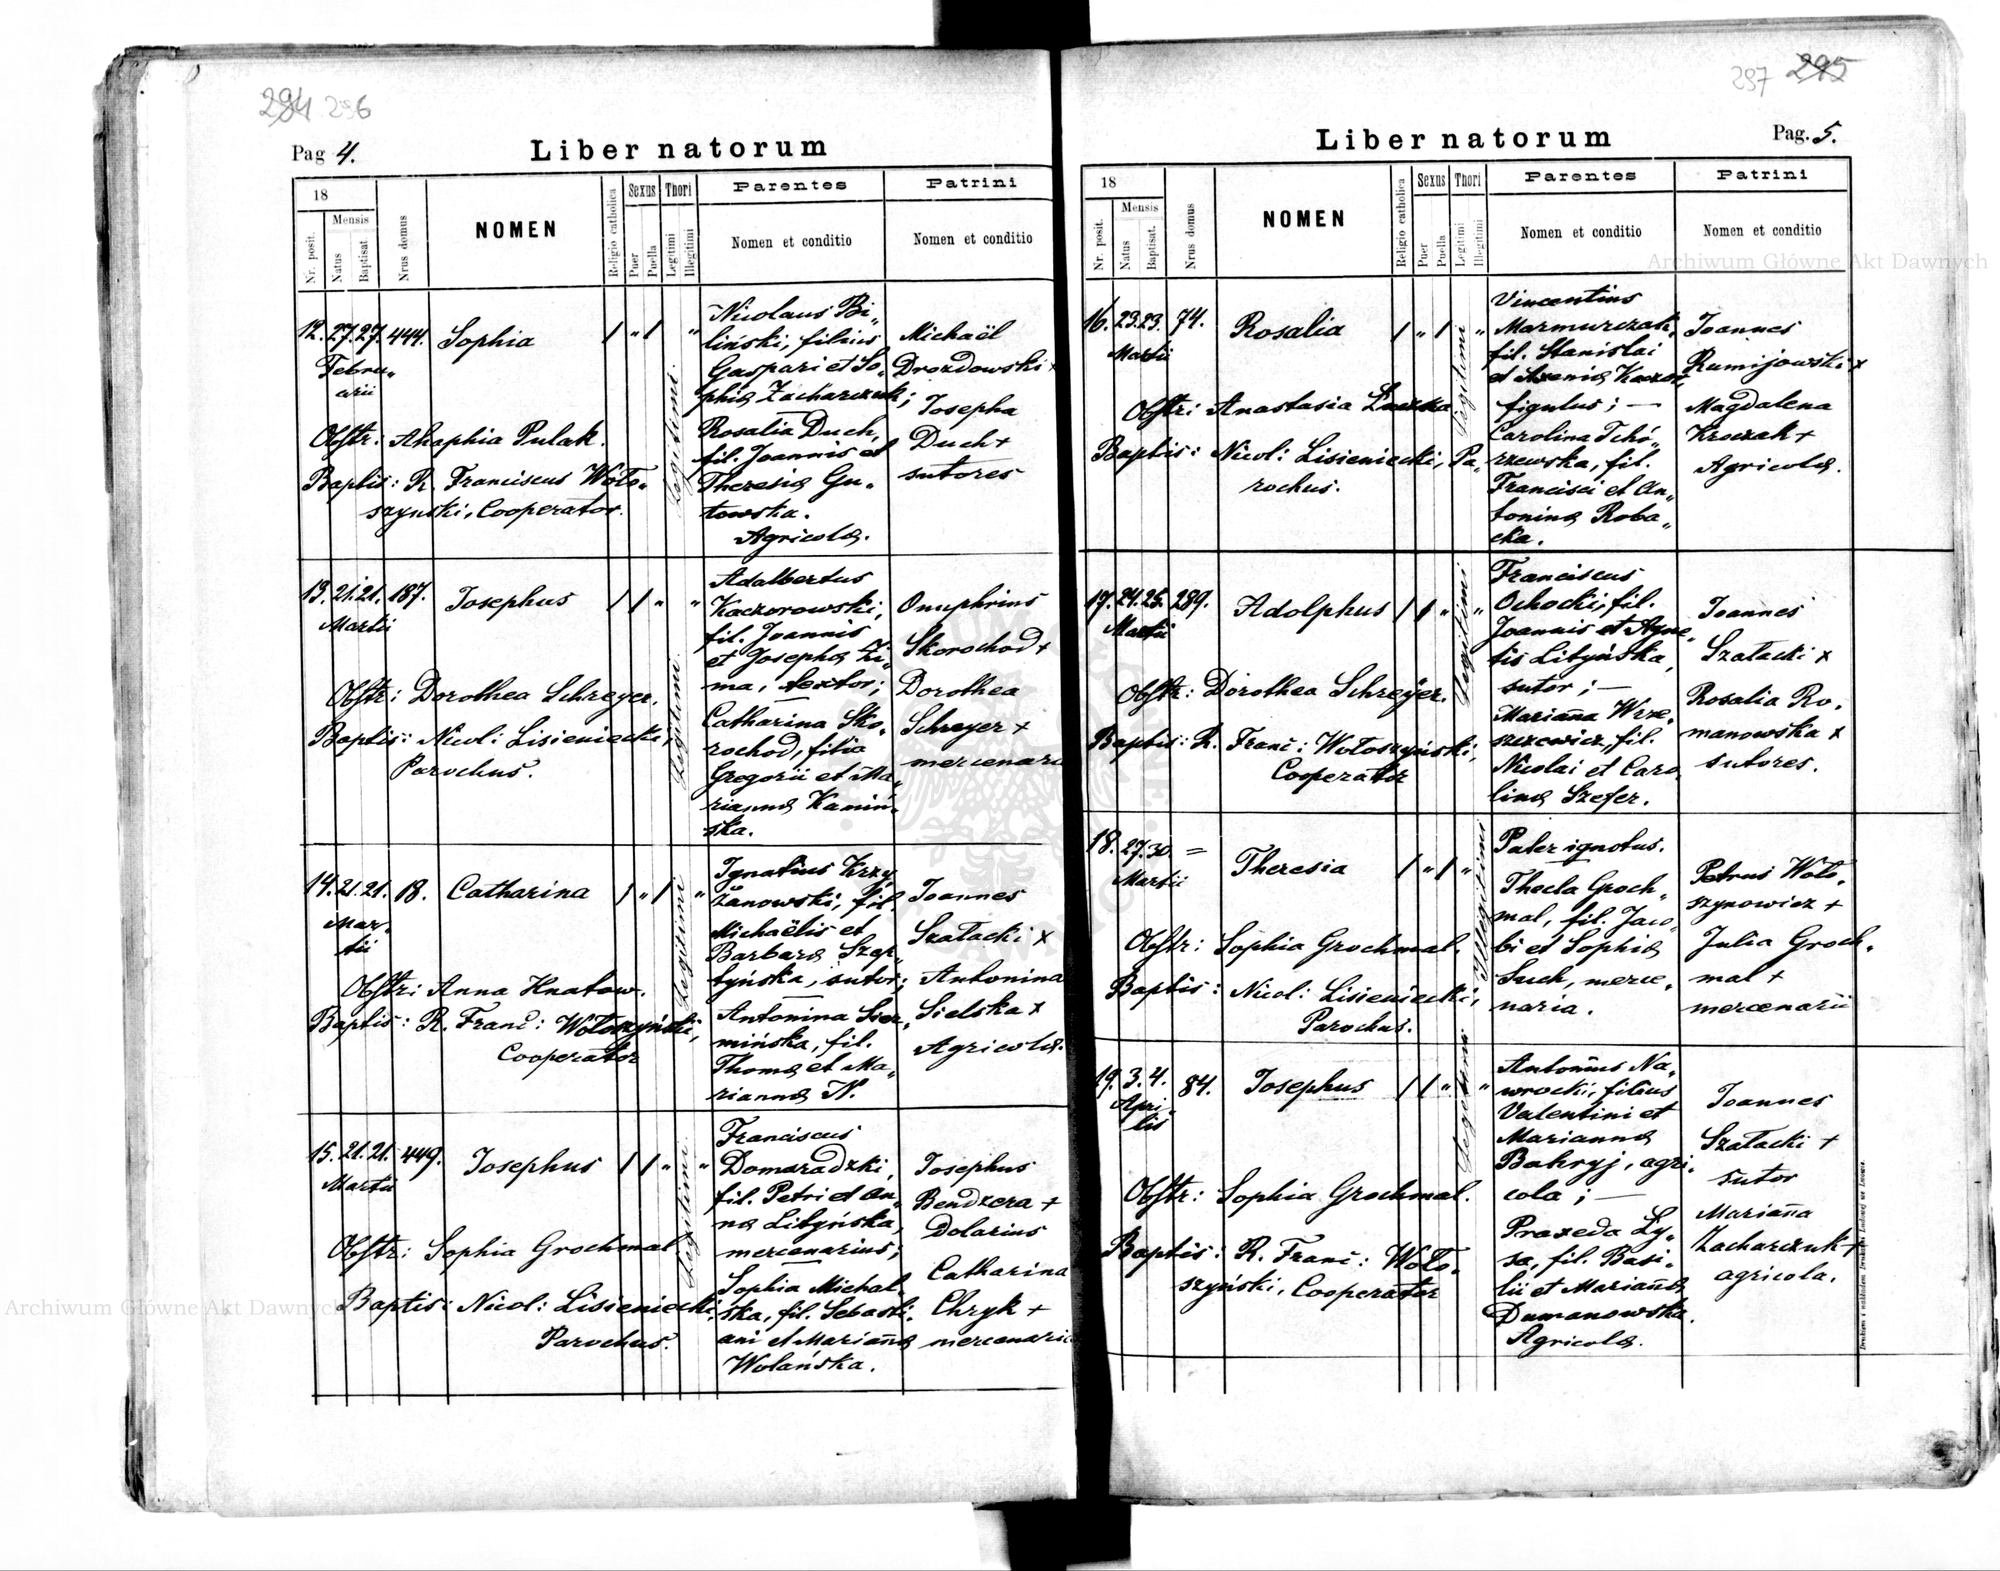 294 296
Pag 4.
Liber natorum
18
Mensis
Nr. posit.
Natus
Baptisat.
Nrus domus
NOMEN
Religio catholica
Sexus
Puer
Puella
Thori
Legitimi
Illegitimi
Parentes
Nomen et conditio
Patrini
Nomen et conditio
12. 27. 27. 444. Sophia / " / "
Febru„
arii
Obstr: Ahaphia Pulak.
Baptis: R. Franciscus Woło„
szynski, Cooperator.
Legitimi.
Nicolaus Bi„
liński, filius
Gaspari et So„
phia Zacharczuk;
Rosalia Duch,
fil. Joannis et
Theresia Gu„
towska.
Agricola.
Michaël
Drozdowski x
Josepha
Duch +
sutores
13. 21. 21. 187. Josephus / / " "
Martii
Obstr: Dorothea Schreyer.
Baptis: Nicol: Lisieniecki,
Parochus.
Legitimi.
Adalbertus
Kaczorowski,
fil. Joannis
et Josepha Zi„
ma, textor;
Catharina Sko„
rochod, filia
Gregorii et Ma„
rianna Kamiń„
ska.
Onuphrius
Skorochod +
Dorothea
Schreyer +
14. 21. 21. 18. Catharina / " / "
Mar„
tii
Obstr: Anna Hnatow.
Baptis: R. Franc: Wołoszyński,
Cooperator
Legitimi
Ignatius Krzy„
żanowski, fil.
Michaëlis et
Barbara Szep„
tyńska, sutor;
Antonina Sier„
mińska, fil.
Thoma et Ma„
rianna N.
Joannes
Szałacki x
Antonina
Sielska x
Agricola.
15. 21. 21. 449. Josephus / / " "
Martii
Obstr: Sophia Grochmal
Baptis: Nicol: Lisieniecki,
Parochus.
Legitimi.
Franciscus
Domaradzki,
fil. Petri et An„
na Libyńska,
mercenarius;
Sophia Michal„
ska, fil. Sebasti„
ani et Marianna
Wolańska.
Josephus
Bendzera +
Dolarius
Catharina
Chryk +
297 295
Liber natorum
Pag. 5.
18
Mensis
Nr. posit.
Natus
Baptisat.
Nrus domus
NOMEN
Religio catholica
Sexus
Puer
Puella
Thori
Legitimi
Illegitimi
Parentes
Nomen et conditio
Patrini
Nomen et conditio
16. 23. 23. 74. Rosalia / " / "
Martii
Obstr: Anastasia
Baptis: Nicol: Lisieniecki, Pa„
rochus.
Legitimi
Vincentius
Marmurczak,
fil. Stanislai
et
figulus; —
Carolina Tchó„
rzewska, fil.
Francisci et An„
tonina Roba„
cka.
Joannes
Rumijowski x
Magdalena
Kroczak +
Agricola.
17. 24. 25. 289. Adolphus / / " "
Martii
Obstr: Dorothea Schreyer.
Baptis: R. Franc: Wołoszyński,
Cooperator
Legitimi
Franciscus
Ochocki, fil.
Joannis et Agne„
tis Libyńska,
sutor; —
Marianna Wrze„
szczewicz, fil.
Nicolai et Caro„
lina Szefer.
Joannes
Szałacki x
Rosalia Ro„
manowska x
sutores.
18. 27. 30. = Theresia / " / "
Martii
Obstr: Sophia Grochmal.
Baptis: Nicol: Lisieniecki,
Parochus.
Illegitimi
Pater ignotus.
Thecla Groch„
mal, fil. Jaco„
bi et Sophia
Such, merce„
naria.
Petrus Woło„
szynowicz +
Julia Groch„
mal +
mercenarii
19. 3. 4. 84. Josephus / / " "
Apri„
lis
Obstr: Sophia Grochmal.
Baptis: R. Franc: Woło„
szyński, Cooperator
Legitimi
Antonius Na„
wrocki, filius
Valentini et
Marianna
Bakryj, agri„
cola; —
Praxeda Ły„
sa, fil. Basi„
lii et Marianna
Dumanowska.
Agricola.
Joannes
Szałacki +
sutor
Marianna
Zacharczuk +
agricola.
Archiwum Główne Akt Dawnych
Archiwum Główne Akt Dawnych